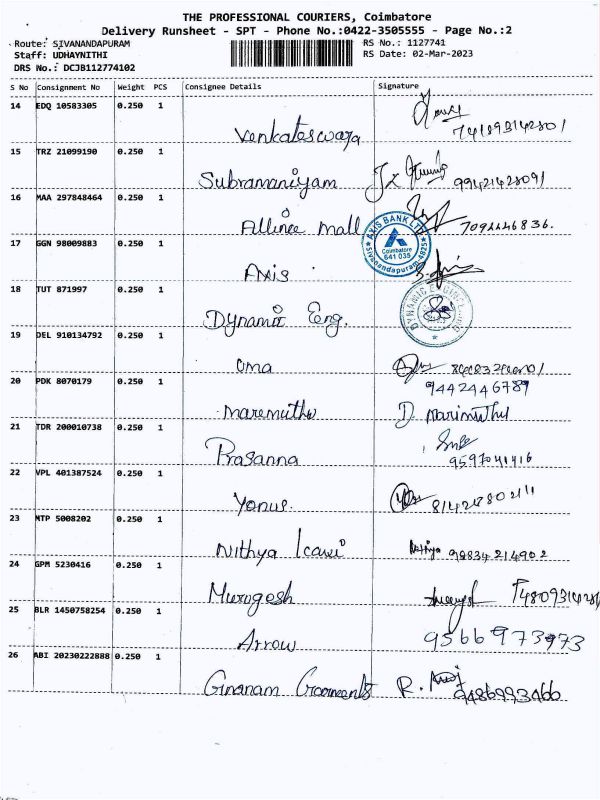 THE PROFESSIONAL COURIERS, Coimbatore
Delivery Runsheet - SPT - Phone No.:0422-3505555 - Page No.:2
Route: SIVANANDAPURAM RS No.: 1127741
Staff: UDHAYNITHI RS Date: 02-Mar-2023
DRS No.: DCJB112774102
S No Consignment No Weight PCS Consignee Details Signature
14 EDQ 10583305 0.250 1
Venkateswara
15 TRZ 21099190 0.250 1
Subramaniyam 99421428091
16 MAA 297848464 0.250 1
Allince Mall 7092446836.
AXIS BANK LTD
Coimbatore
641 035
Sivanandapuram 4825
17 GGN 98009883 0.250 1
Axis
18 TUT 871997 0.250 1
Dynamic Eng.
DYNAMIC
19 DEL 910134792 0.250 1
Oma
20 PDK 8070179 0.250 1 9442446789
Maremuthu D. Marimuthu
21 TDR 200010738 0.250 1
Prasanna 9597041416
22 VPL 401387524 0.250 1
Yonus.
23 MTP 5008202 0.250 1
Nithya Icawi Nithya 98834214902
24 GPM 5230416 0.250 1
Murugesh
25 BLR 1450758254 0.250 1
Arrow 9566973973
26 ABI 20230222888 0.250 1
Gnanam Garments R. 9486993466